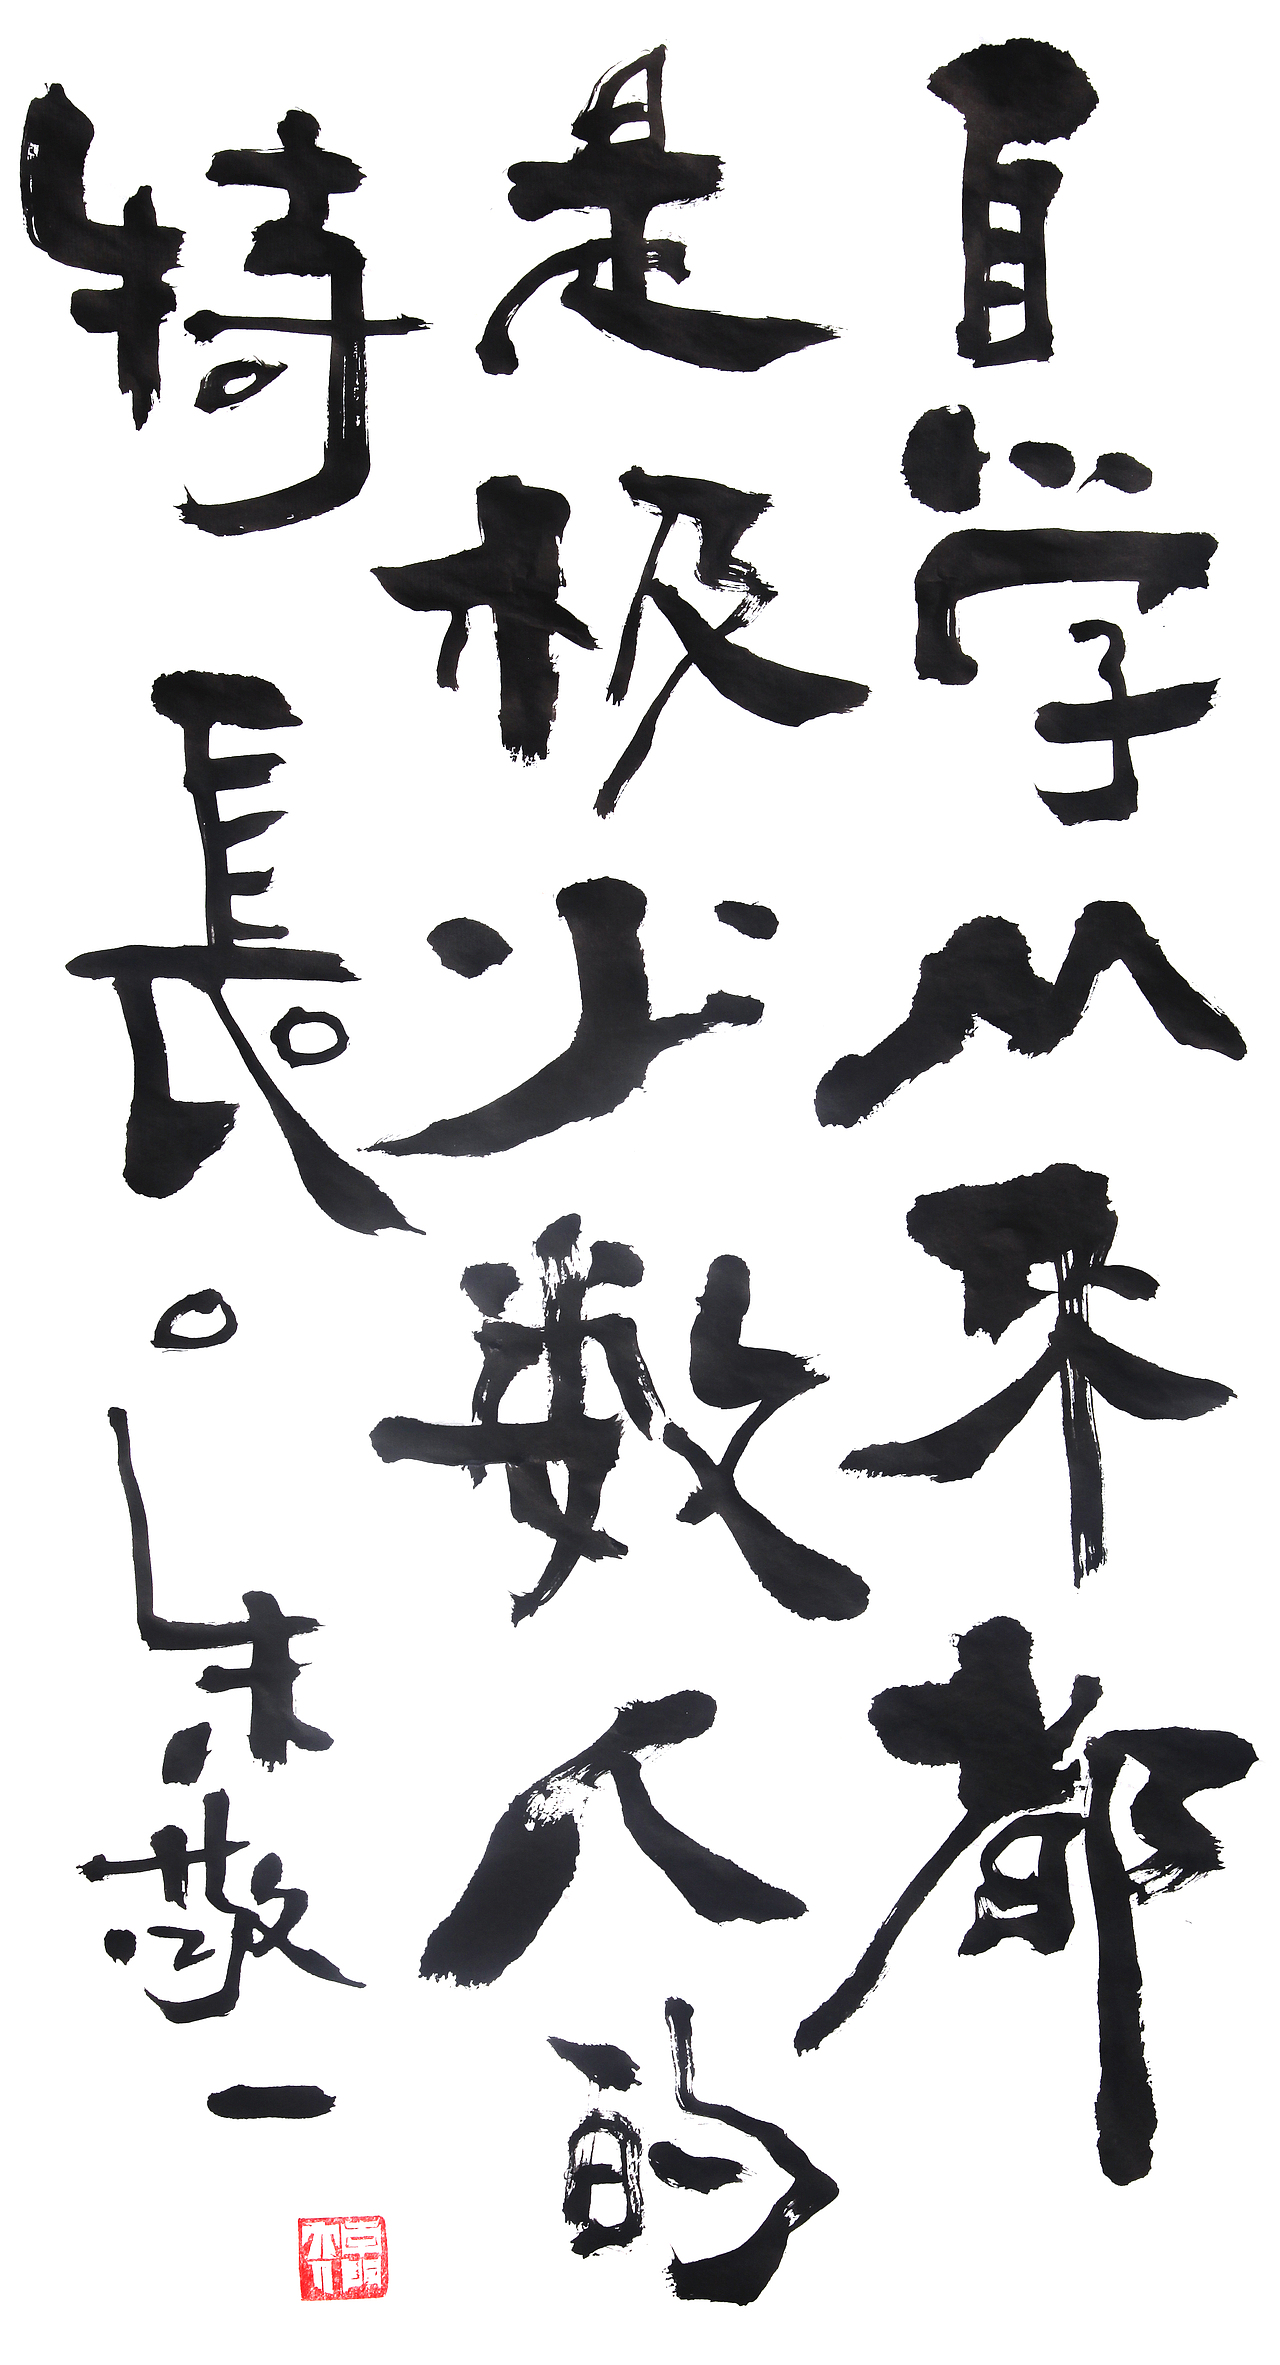 自学从来都
是极少数人的
特長。朱敬一